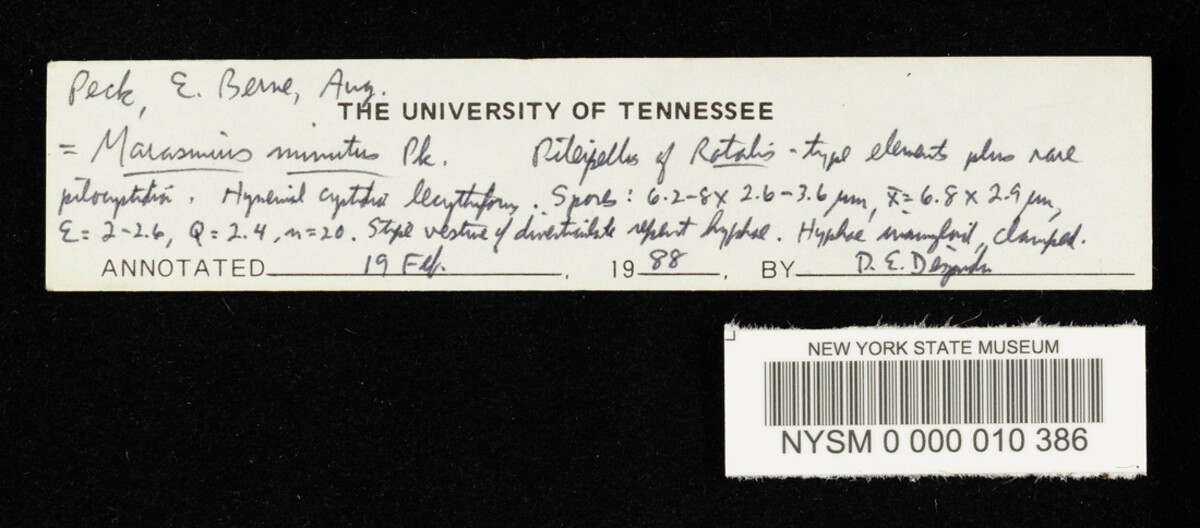 Peck, E. Berne, Aug.
THE UNIVERSITY OF TENNESSEE
= Marasmius minutus Pk. Pileipellis of Rotalis-type elements plus rare
pilocystidia. Hymenial cystidia lecythiform. Spores: 6.2-8 x 2.6-3.6 µm, x̄ = 6.8 x 2.9 µm,
E = 2-2.6, Q = 2.4, n=20. Stipe vesture of diverticulate repent hyphae. Hyphae inamyloid, clamped.
ANNOTATED 19 Feb. , 19 88 , BY D. E. Desjardin
NEW YORK STATE MUSEUM
NYSM 0 000 010 386